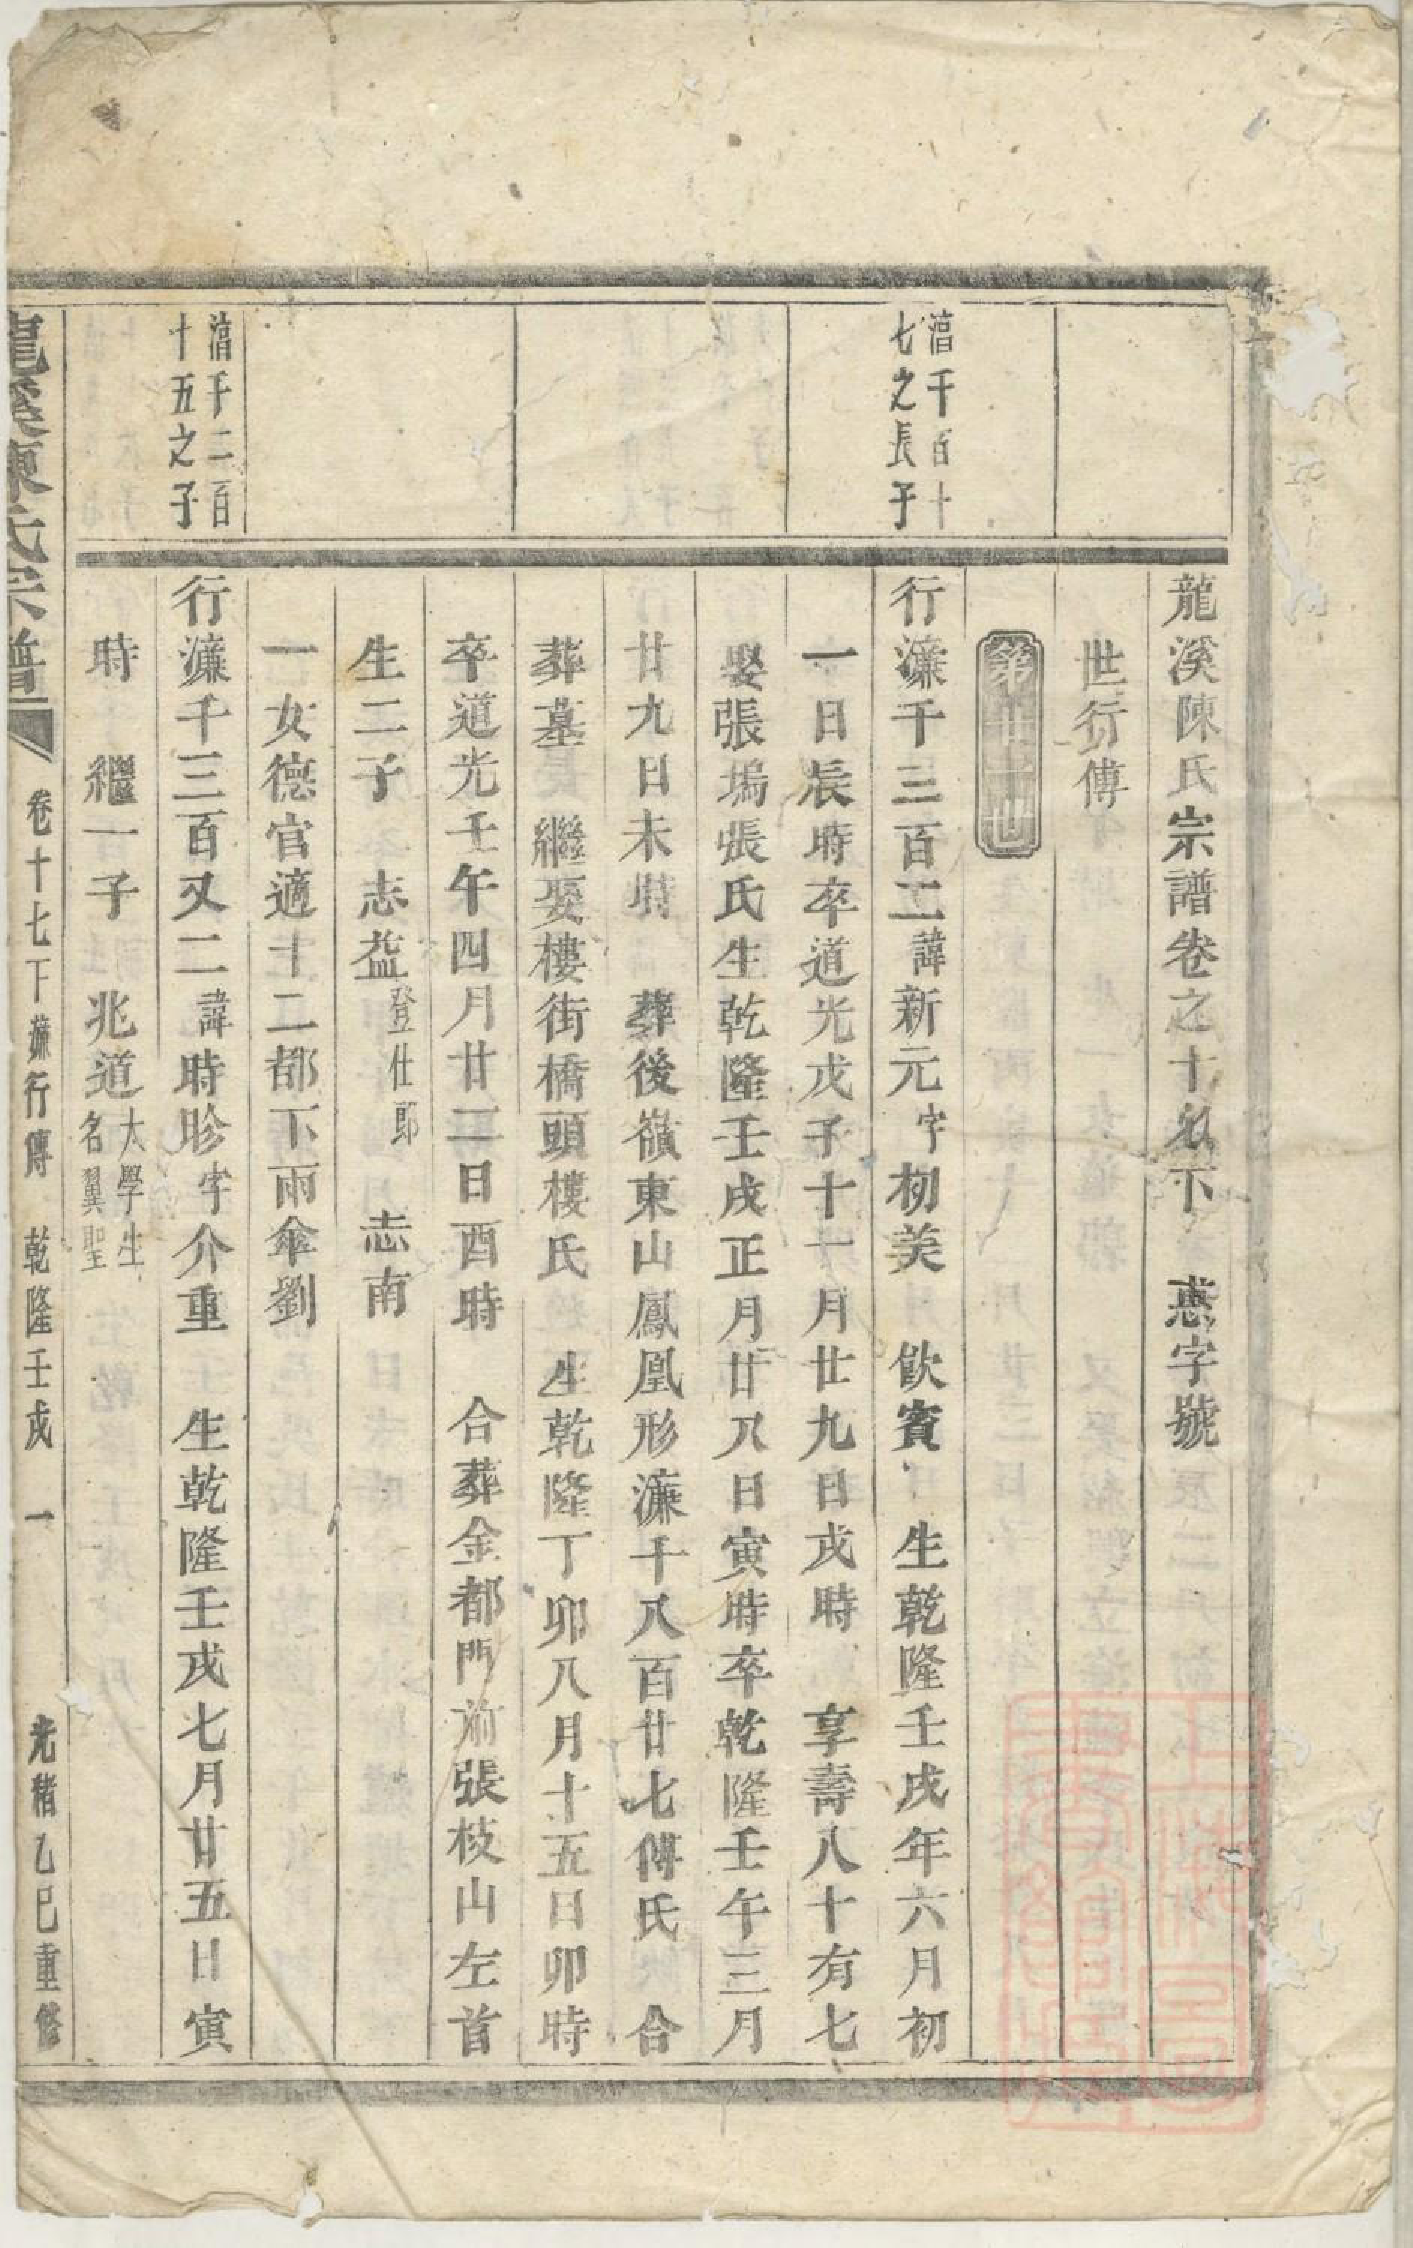 龍溪陳氏宗譜卷之十七下　惠字號
世行傳
第廿一世
濳千百十
七之長子
行濂千三百二諱新元字初美　飲賓　生乾隆壬戌年六月初
一日辰時卒道光戊子十一月廿九日戌時　享壽八十有七
娶張塢張氏生乾隆壬戌正月廿八日寅時卒乾隆壬午三月
廿九日未時　葬後嶺東山鳳凰形濂千八百廿七傅氏　合
葬墓　繼娶樓街橋頭樓氏　生乾隆丁卯八月十五日卯時
卒道光壬午四月廿二日酉時　合葬金都門前張枝山左首
生二子　志益登仕郎　志南
一女德官適十二都下雨傘劉
濳千二百
十五之子
行濂千三百又二諱時昣字介重　生乾隆壬戌七月廿五日寅
時　繼一子　兆道大學生名翼聖
龍溪陳氏宗譜　卷十七下濂行傳　乾隆壬戌　一　光緒乙巳重修
上海圖書館藏